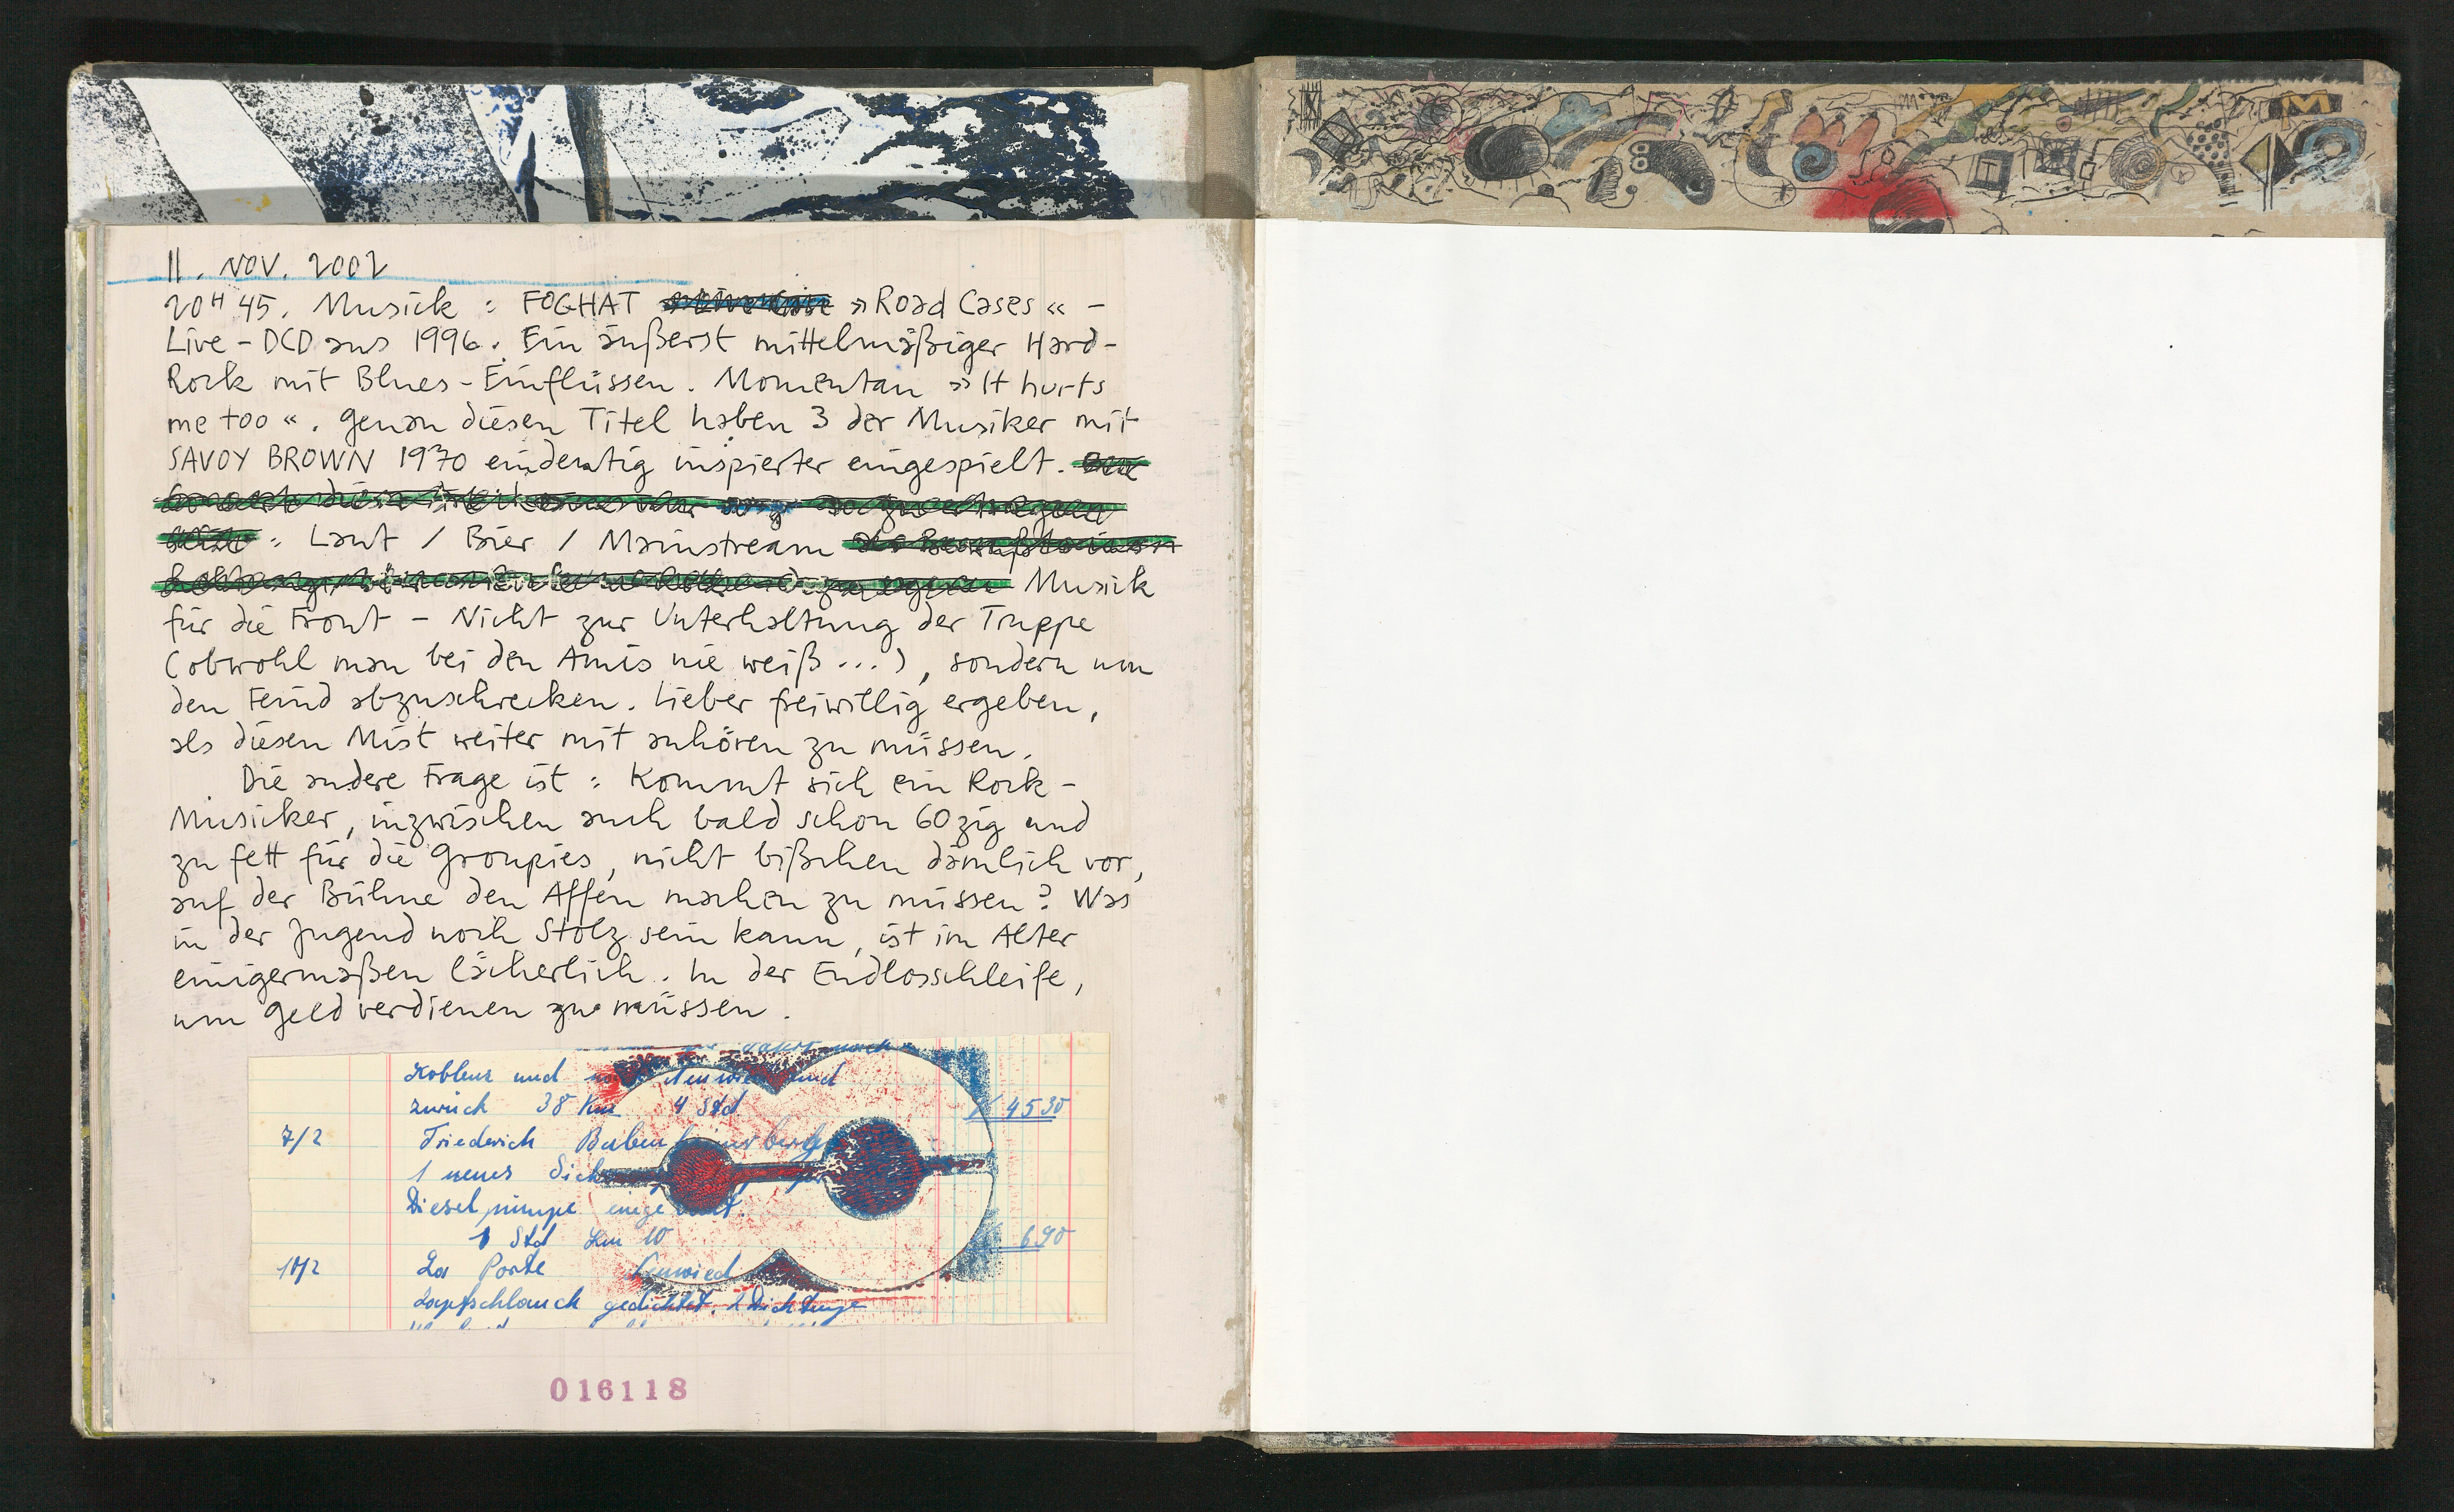 11. NOV. 2002
20H 45. Musick : FOGHAT »Road Cases« -
Live-DCD aus 1996. Ein äußerst mittelmäßiger Hard-
Rock mit Blues-Einflüssen. Momentan »It hurts
me too«. Genau diesen Titel haben 3 der Musiker mit
SAVOY BROWN 1970 eindeutig inspierter eingespielt.
: Laut / Bier / Mainstream
Musick
für die Front - Nicht zur Unterhaltung der Truppe
(obwohl man bei den Amis nie weiß...), sondern um
den Feind abzuschrecken. Lieber freiwillig ergeben,
als diesen Mist weiter mit anhören zu müssen.
Die andere Frage ist : Kommt sich ein Rock-
Musicker, inzwischen auch bald schon 60zig und
zu fett für die Groupies, nicht bißchen dämlich vor,
auf der Bühne den Affen machen zu müssen? Was
in der Jugend noch Stolz sein kann, ist im Alter
einigermaßen lächerlich. In der Endlosschleife,
um Geld verdienen zu müssen.
Koblenz und Neuwied und
zurück 38 Km 4 Std 4530
7/2 Friederich
1 neues
Dieselpumpe
1 Std Km 10 690
10/2 La Porte Neuwied
Zapfschlauch gedichtet. 1 Dichtunge
016118
M